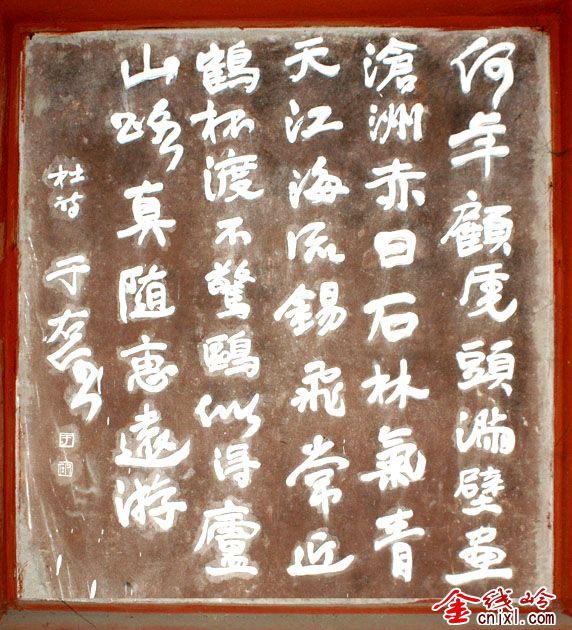 何年顧虎頭滿壁畫
滄洲赤日石林氣青
天江海流錫飛常近
鶴杯渡不驚鷗似得廬
山路真隨惠遠游
杜詩 于右任
金线岭
cnjxl.com